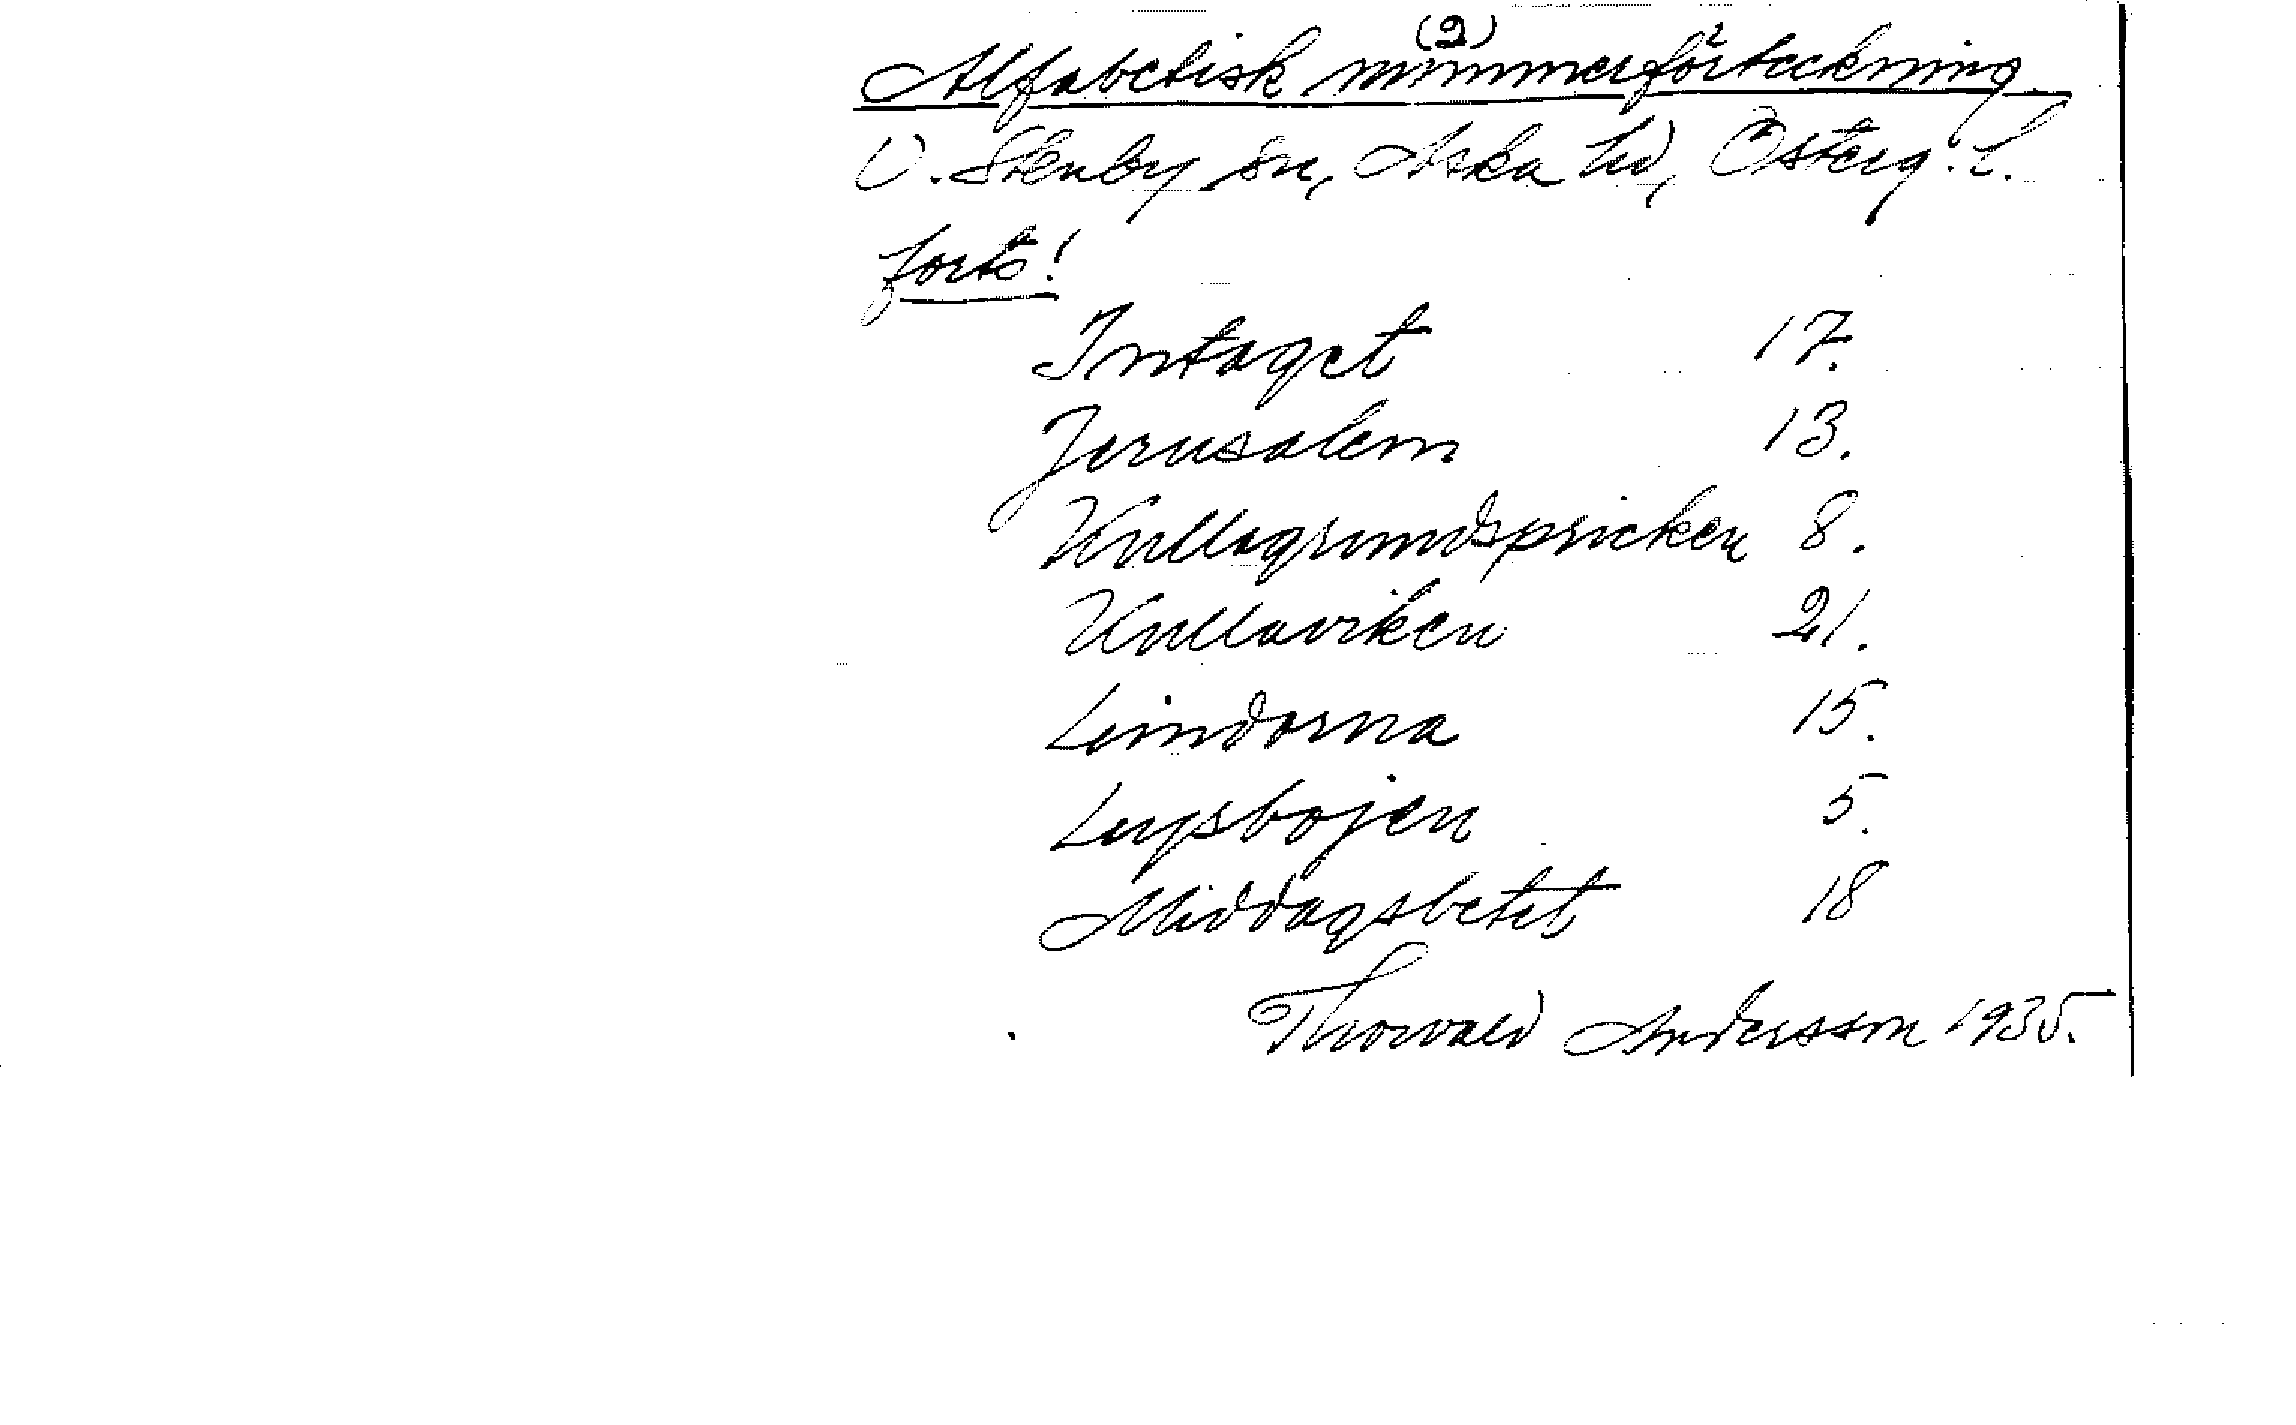 (2)
Alfabetisk nummerförteckning
V. Stenby sn, Aska hd, Österg. l.
forts!
Intaget 17.
Jerusalem 13.
Kullagrundspricken 8.
Kullaviken 21.
Lindorna 15.
Lysbojen 5.
Middagsbetet 18
Thorvald Andersson 1935.